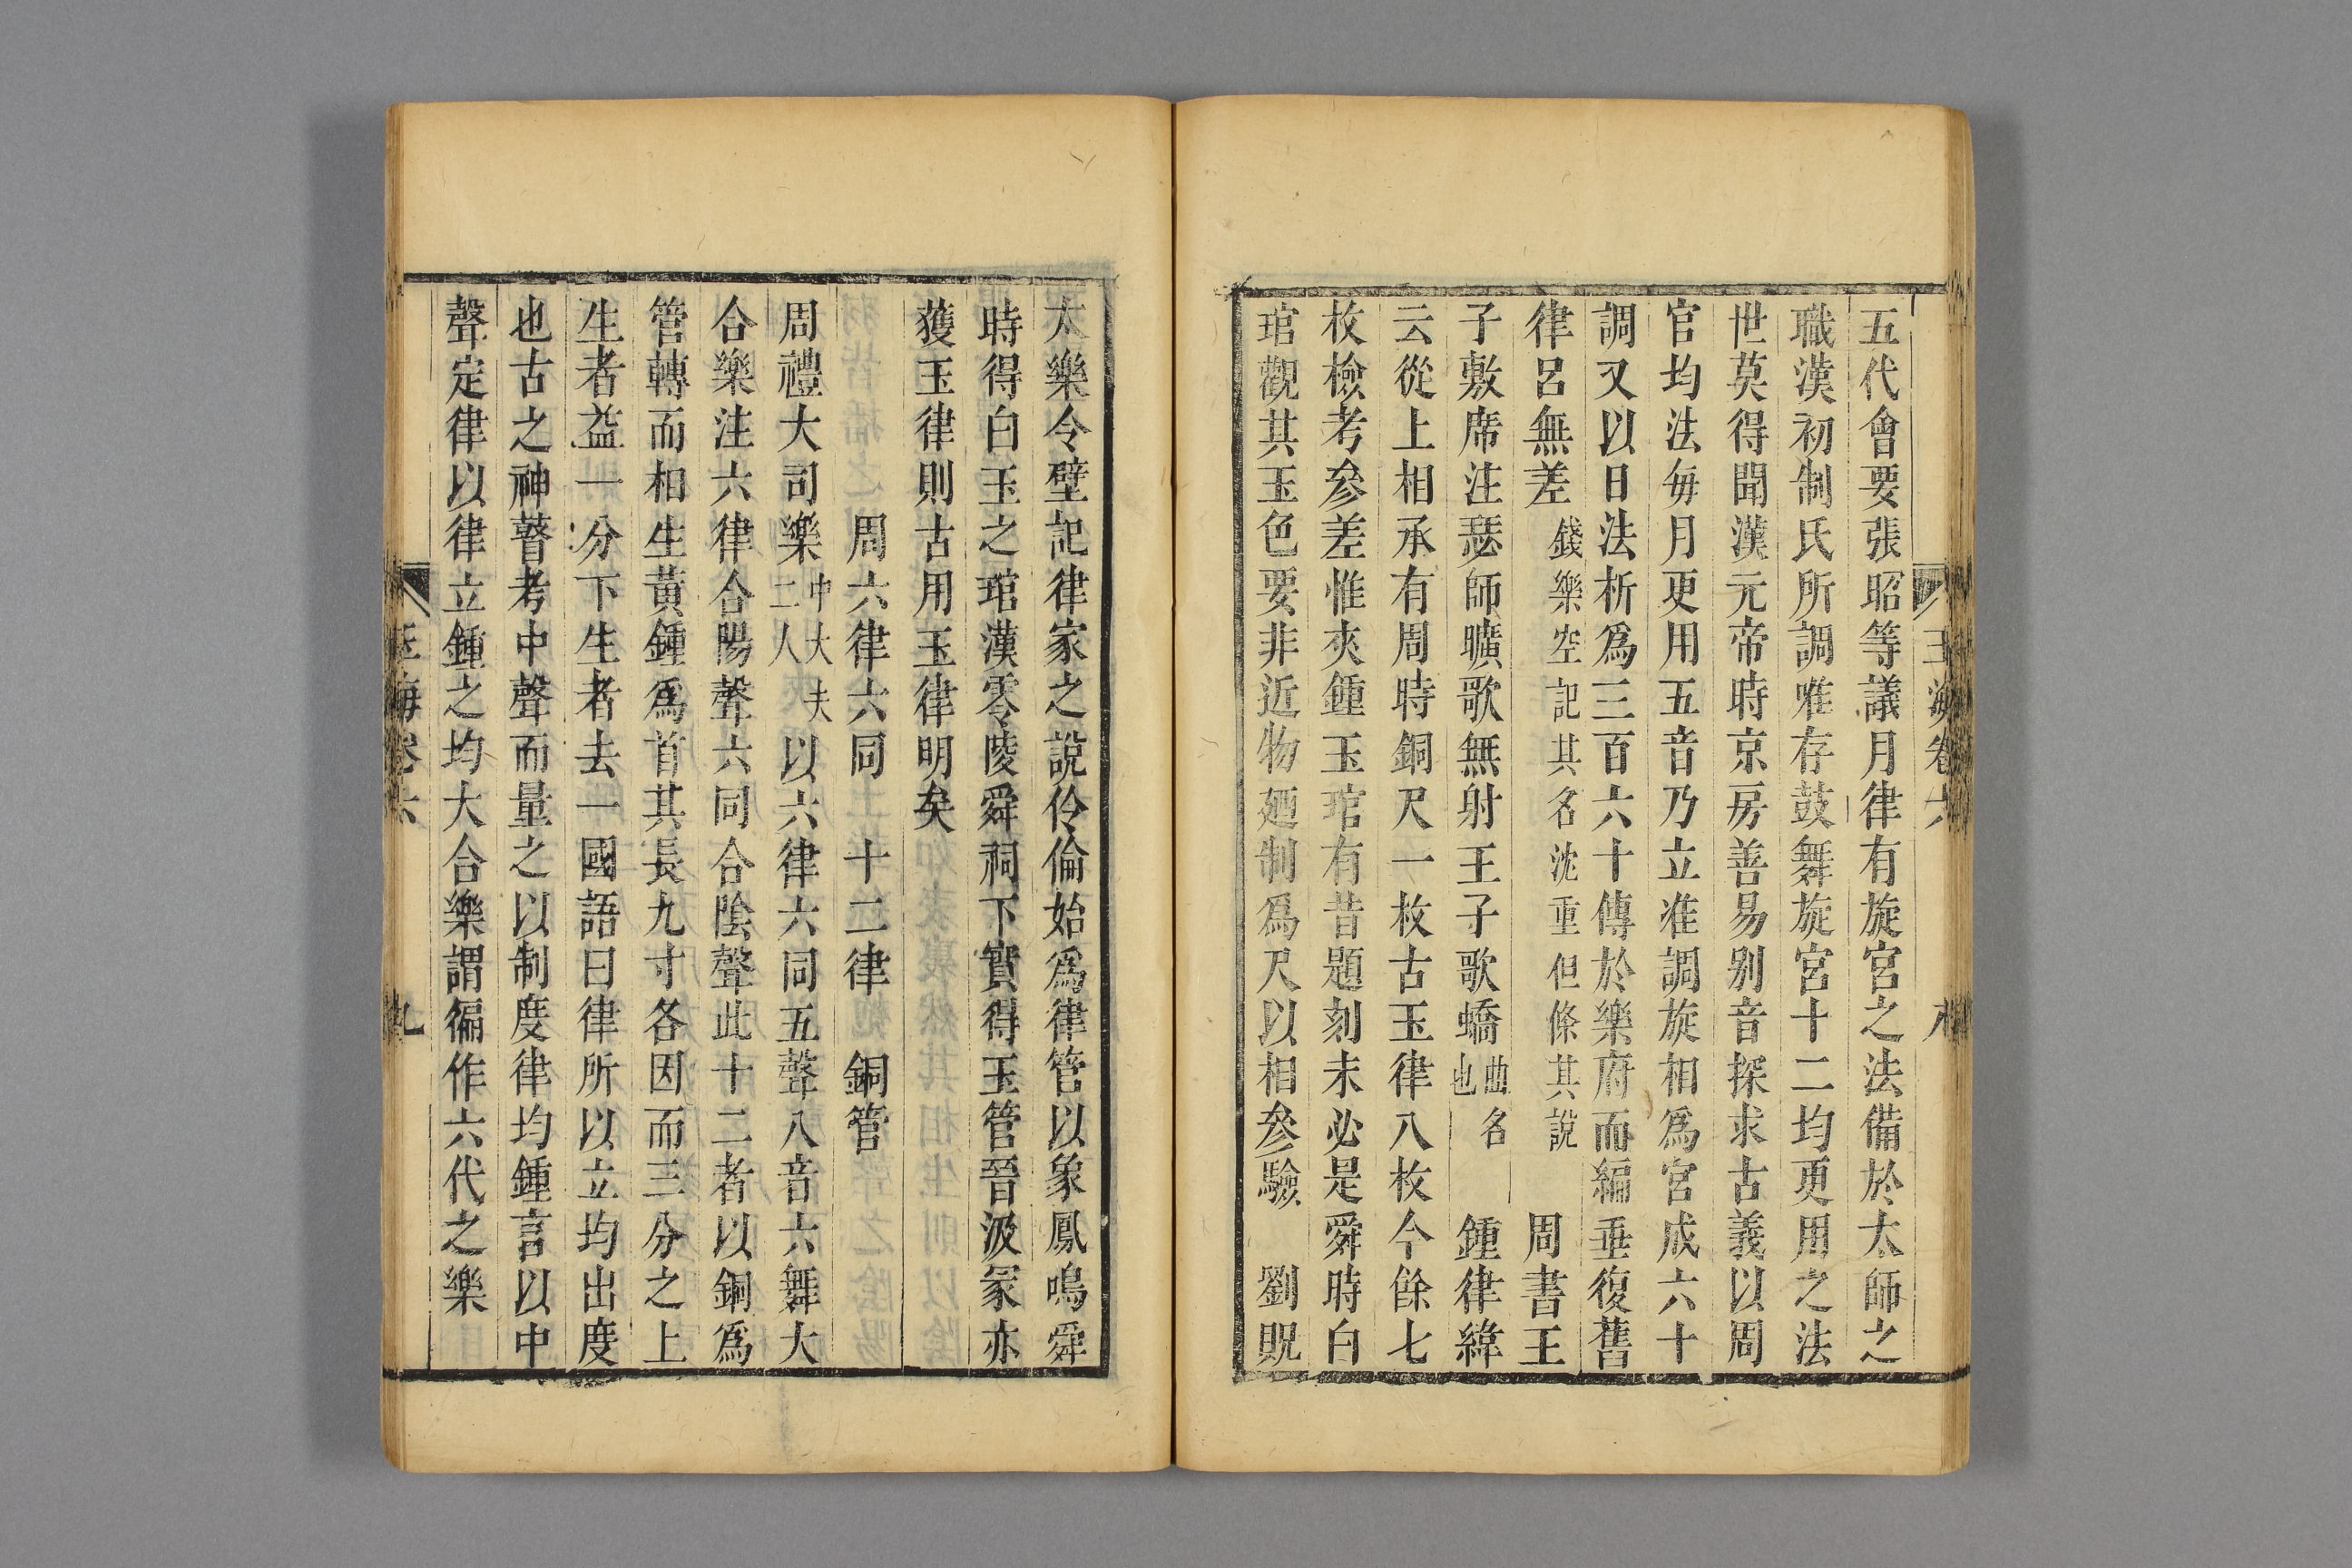 五代會要張昭等議月律有旋宮之法備於太師之
職漢初制氏所調唯存鼓舞旋宮十二均更用之法
世莫得聞漢元帝時京房善易别音探求古義以周
官均法每月更用五音乃立准調旋相爲宮成六十
調又以日法析爲三百六十傳於樂府而編垂復舊
律呂無差錢樂空記其名沈重但條其說 周書王
子敷席注瑟師曠歌無射王子歌蟜曲名也 鍾律緯
云從上相承有周時銅尺一枚古玉律八枚今餘七
枚檢考參差惟夾鍾玉琯有昔題刻未必是舜時白
琯觀其玉色要非近物廼制爲尺以相參驗 劉貺
太樂令壁記律家之說伶倫始爲律管以象鳳鳴舜
時得白玉之琯漢零陵舜祠下實得玉管晉汲冢亦
獲玉律則古用玉律明矣
周六律六同 十二律 銅管
周禮大司樂中大夫二人以六律六同五聲八音六舞大
合樂注六律合陽聲六同合陰聲此十二者以銅爲
管轉而相生黃鍾爲首其長九寸各因而三分之上
生者益一分下生者去一國語曰律所以立均出度
也古之神瞽考中聲而量之以制度律均鍾言以中
聲定律以律立鍾之均大合樂謂徧作六代之樂
玉海卷六 九